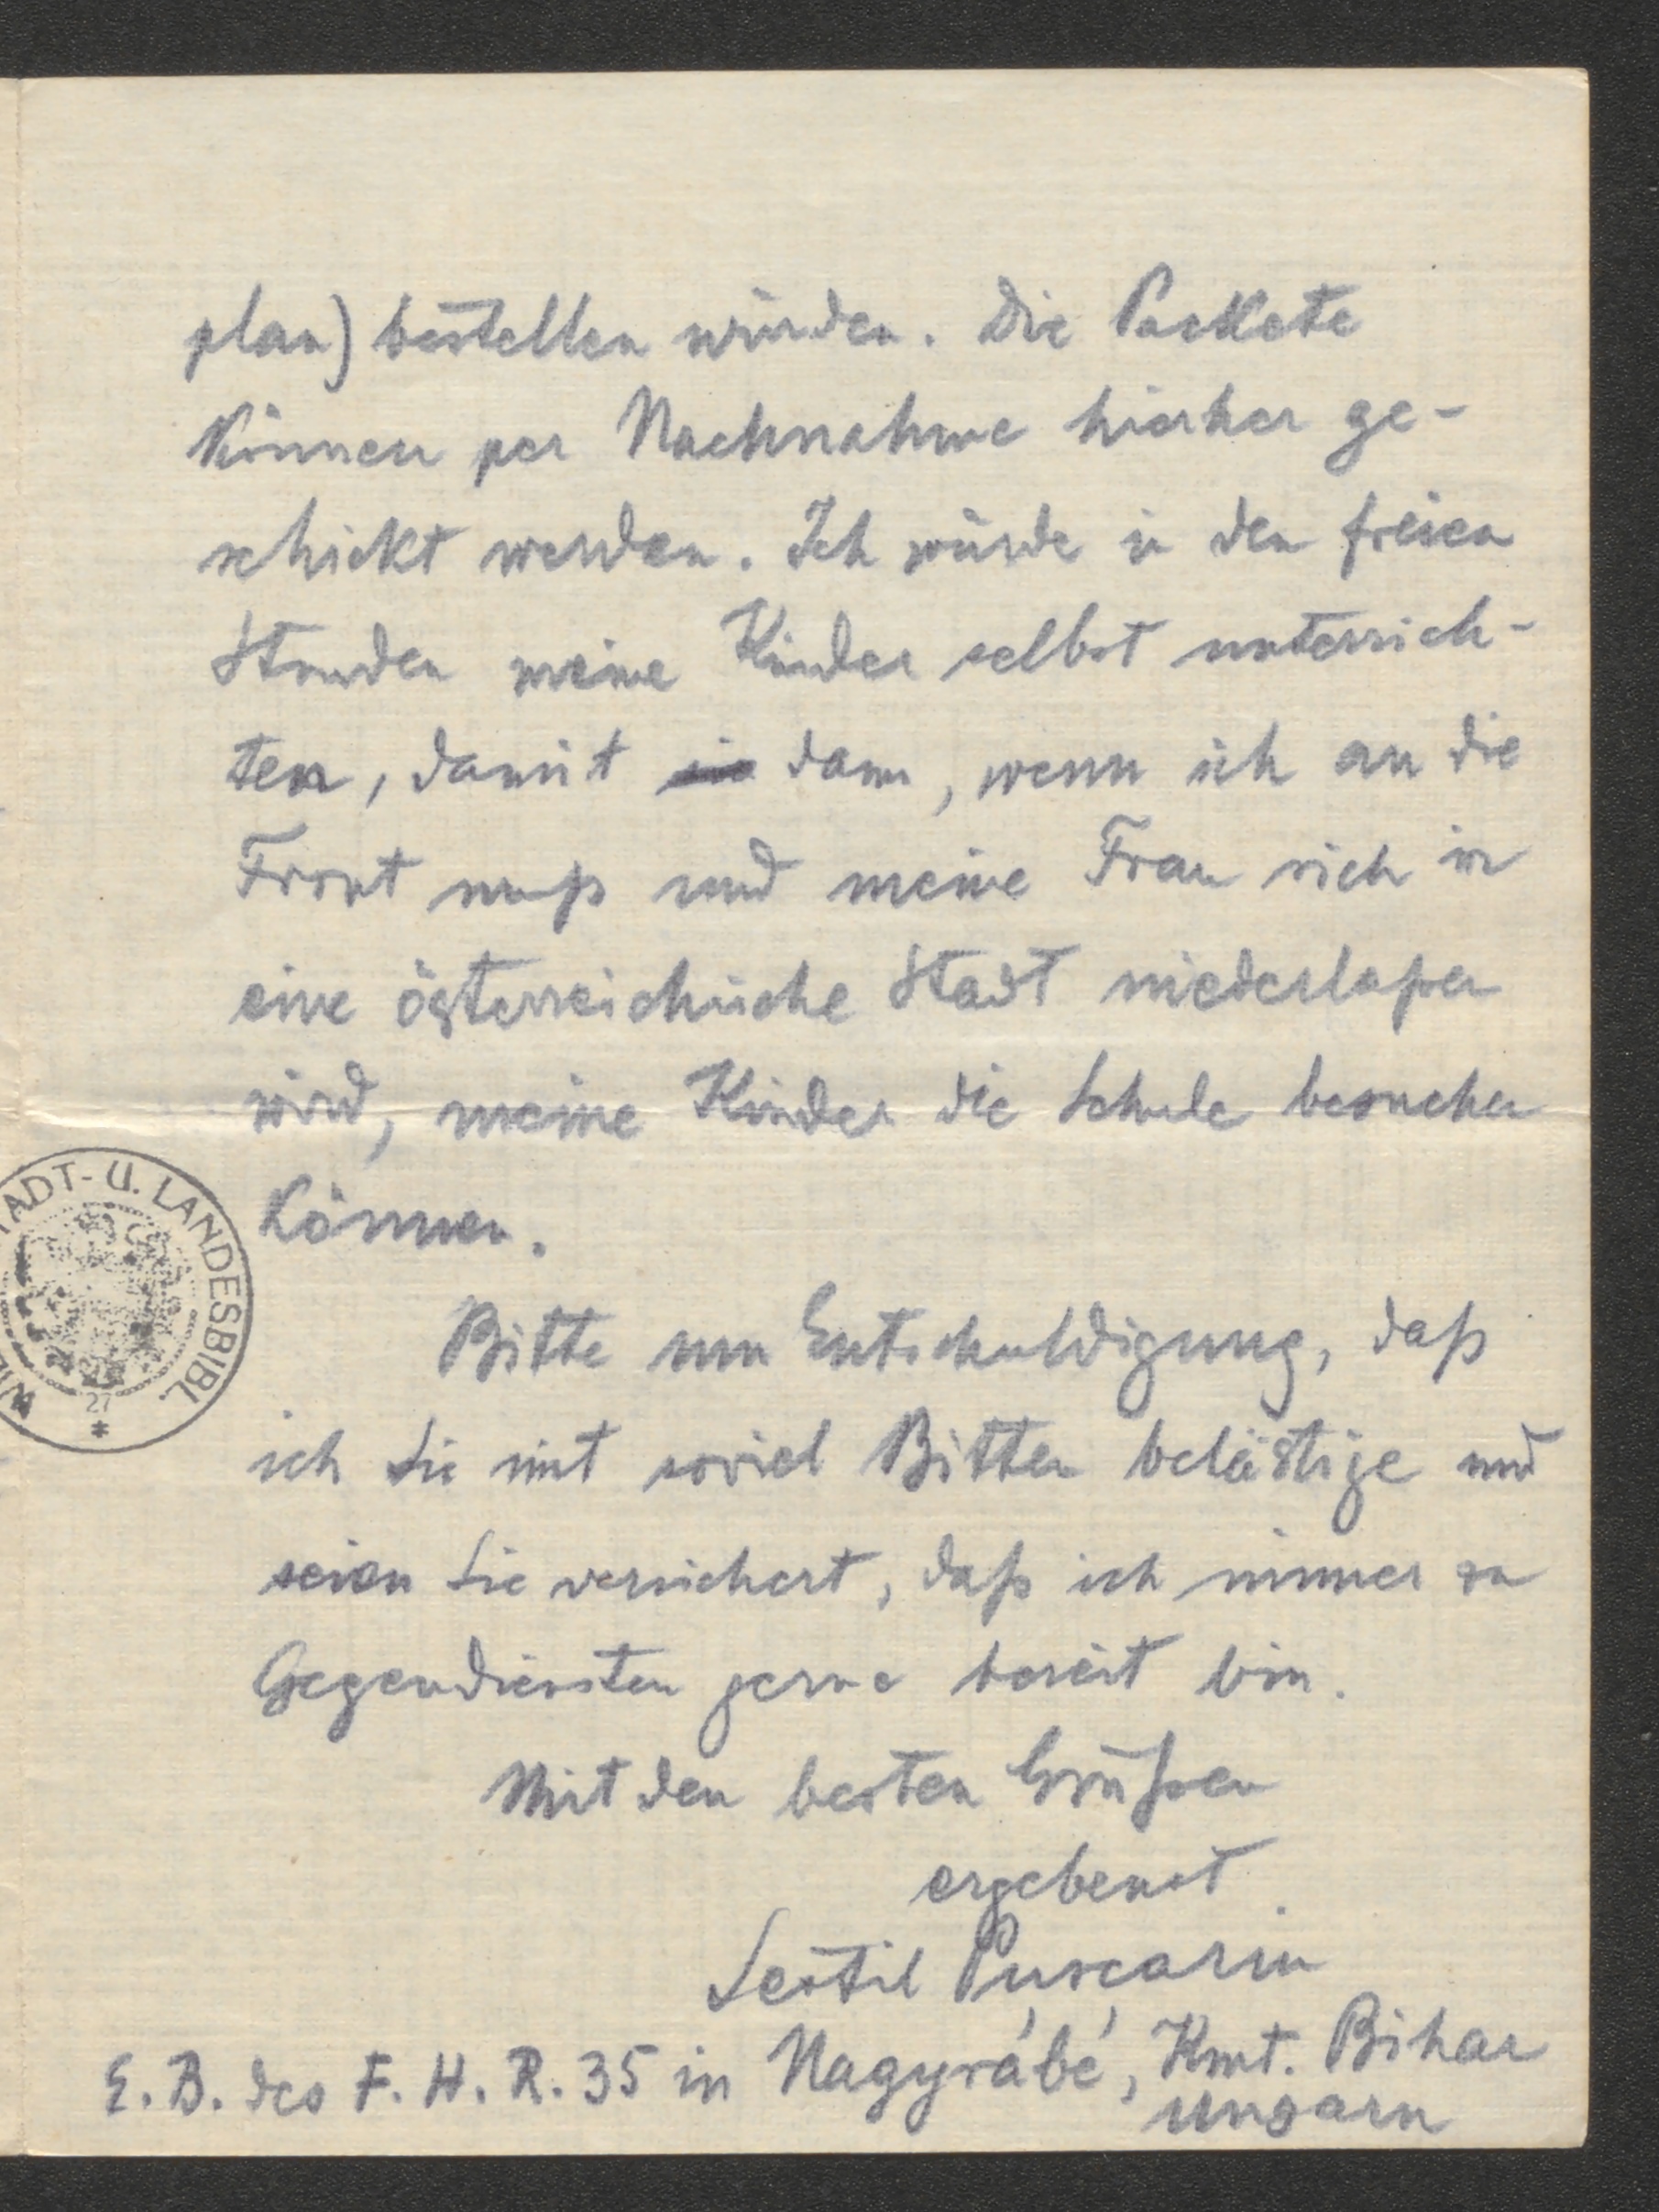 plan) bestellen würden. Die Packete
können per Nachnahme hierher ge-
schickt werden. Ich würde in den freien
Stunden meine Kinder selbst unterrich-
ten, damit dann, wenn ich an die
Front muß und meine Frau sich in
eine österreichische Stadt niederlaßen
wird, meine Kinder die Schule besuchen
können.
Bitte um Entschuldigung, daß
ich Sie mit soviel Bitten belästige und
seien Sie versichert, daß ich immer zu
Gegendiensten gerne bereit bin.
Mit den besten Grüßen
ergebenst
Sextil Puscariu
E. B. des F. H. R. 35 in Nagyrábé, Kmt. Bihar
Ungarn
TADT- U. LANDESBIBL.
27